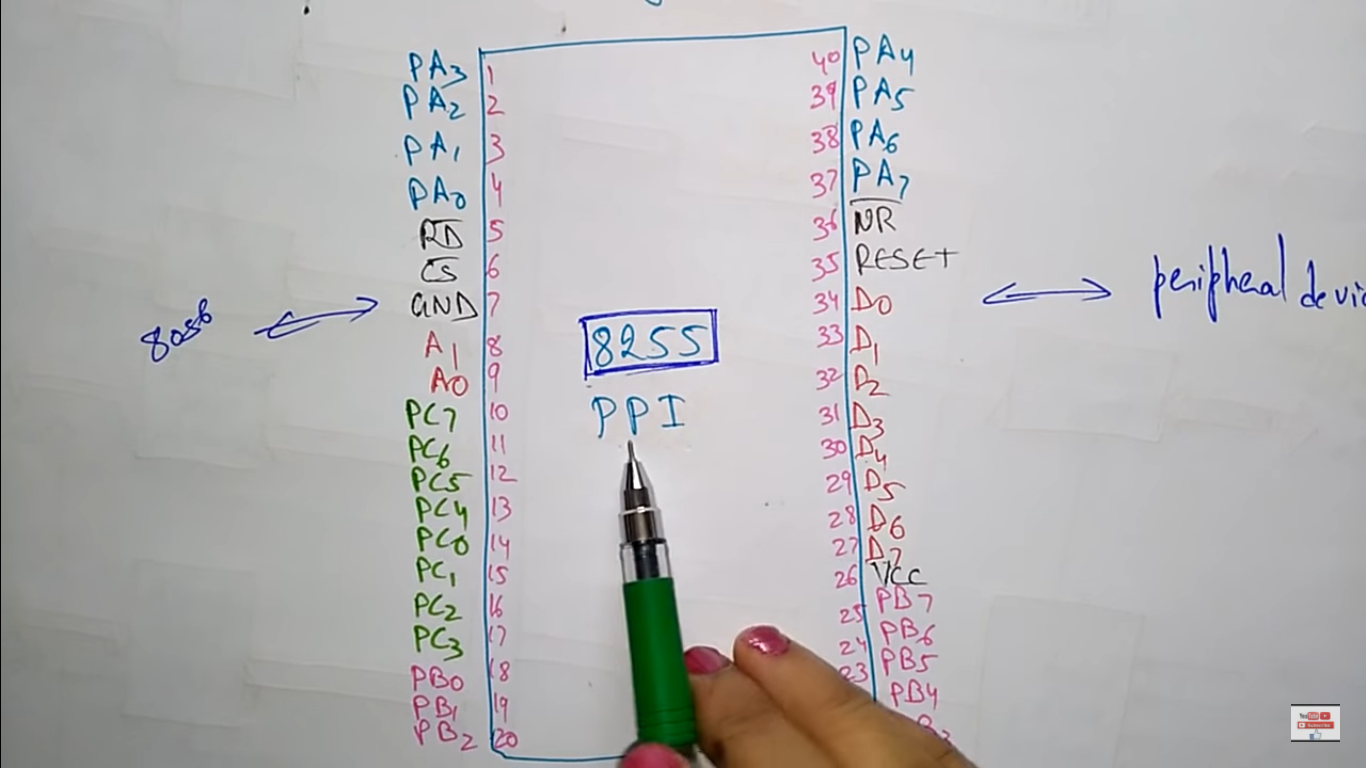 PA3 1
PA2 2
PA1 3
PA0 4
RD 5
CS 6
GND 7
A1 8
A0 9
PC7 10
PC6 11
PC5 12
PC4 13
PC0 14
PC1 15
PC2 16
PC3 17
PB0 18
PB1 19
PB2 20
40 PA4
39 PA5
38 PA6
37 PA7
36 WR
35 RESET
34 D0
33 D1
32 D2
31 D3
30 D4
29 D5
28 D6
27 D7
26 VCC
25 PB7
24 PB6
23 PB5
PB4
8255
PPI
8086
peripheral
YouTube
Subscribe